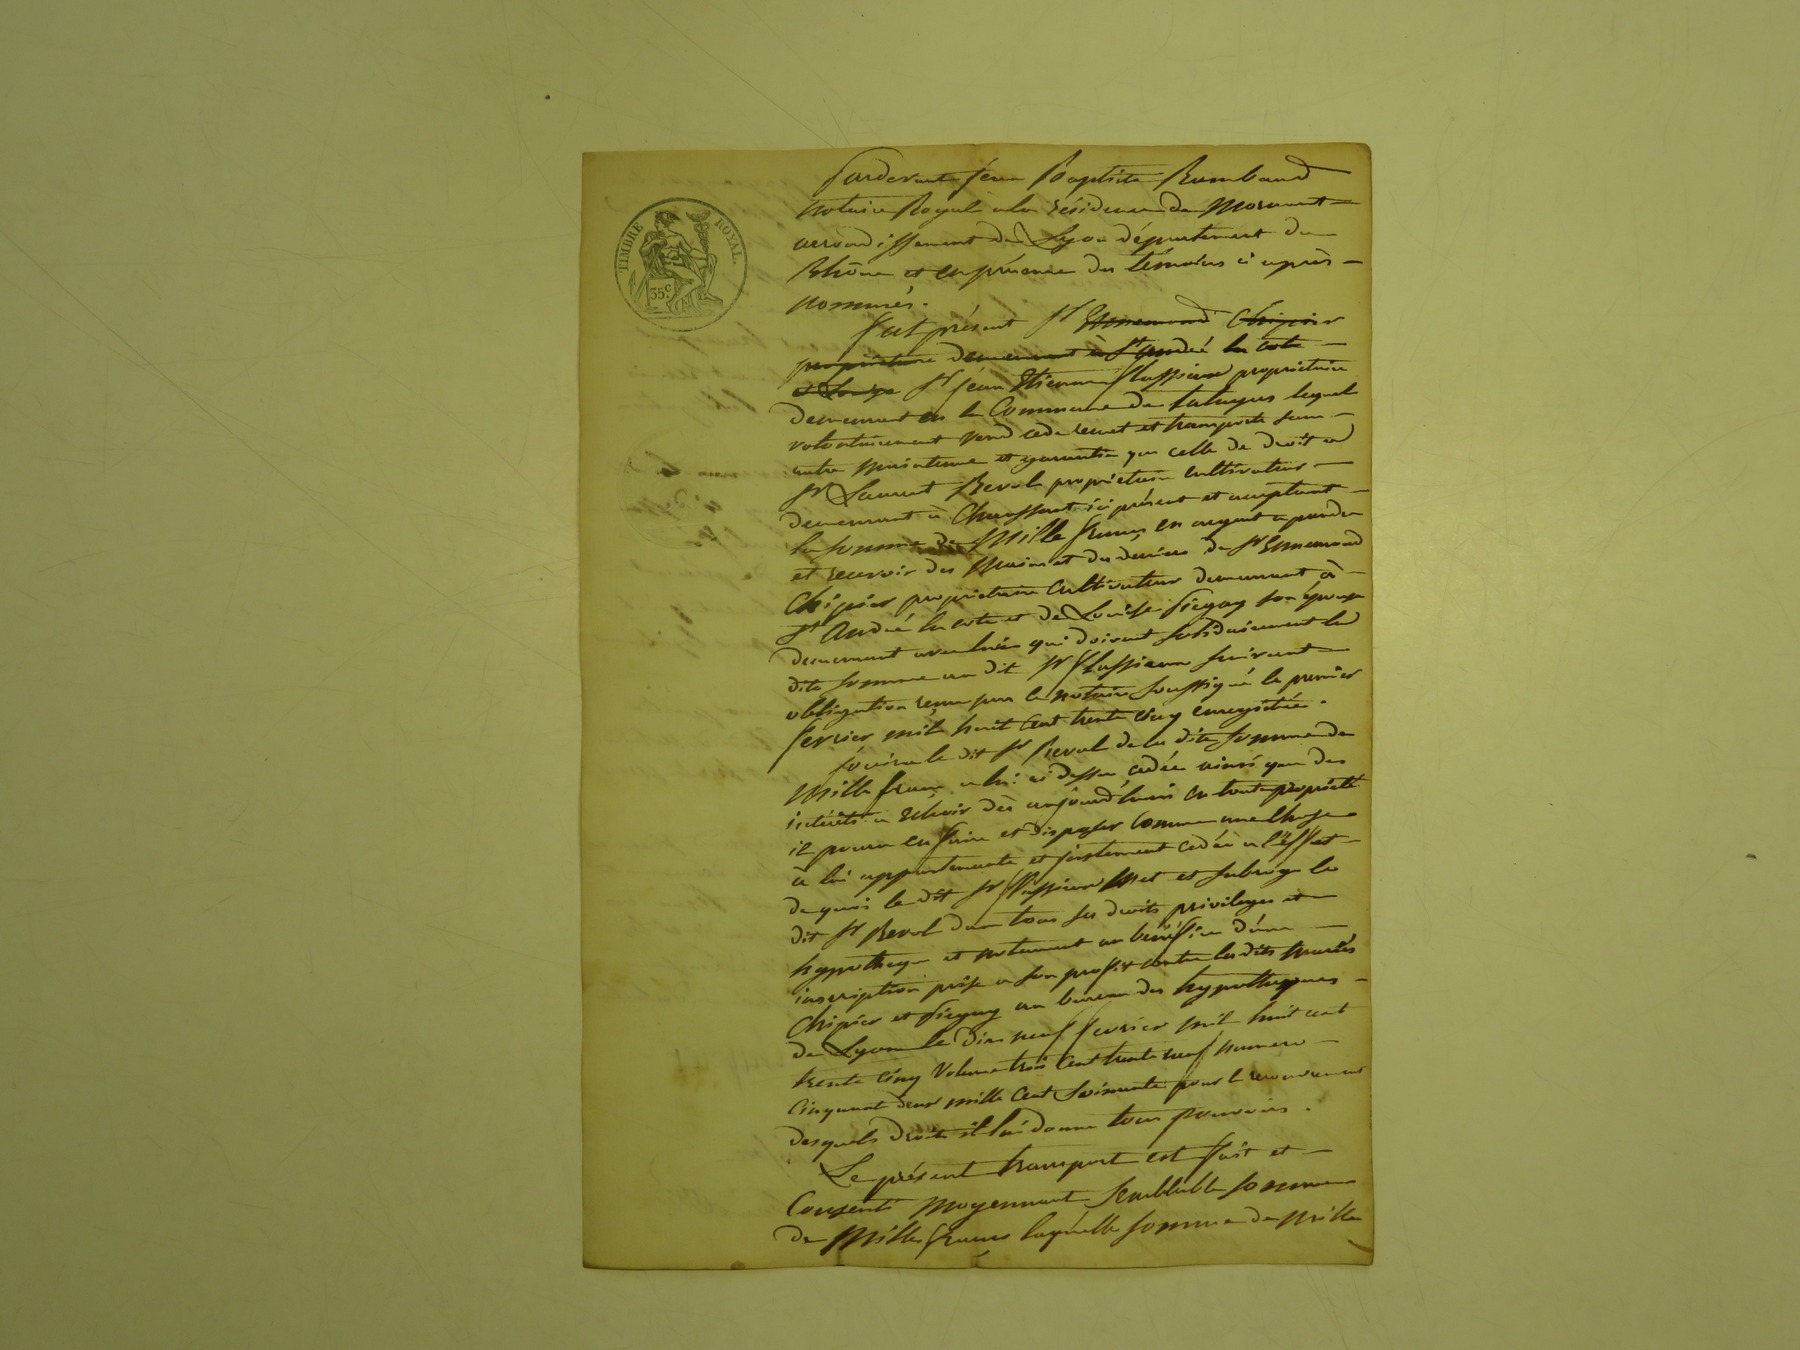 TIMBRE ROYAL.
35c.
Pardevant Jean Baptiste Rambaud
notaire Royal a la résidence de Mornant
arrondissement de Lyon département du
Rhône et en présence des témoins ci après
nommés.
fut présent Sr Ennemond Chipier
propriétaire demeurant à St andré la cote
et Louise Sr jean Etienne propriétaire
demeurant en la Commune de taluyers lequel
volontairement vend cede remet et transporte sans
autre maintenue et garantie que celle de droit a
Sr Laurent Reval propriétaire cultivateur
demeurant à Chaussant ici présent et acceptant
la somme de Mille francs en argent a prendre
et recevoir des Mains et des deniers de Sr Ennemond
Chipier propriétaire Cultivateur demeurant à
St André la cote et de Louise son épouse
demeurant avec lui qui doivent solidairement la
dite somme au dit Sr suivant
obligation reçue par le notaire soussigné le premier
fevrier mil huit cent trente cinq enregistrée.
Jouira le dit Sr Reval de la dite somme de
Mille francs a lui ci dessus cédée ainsi que des
intérêts a échoir dès aujourd'huis en toute propriété
il pourra en faire et disposer comme une chose
à lui appartenante et justement cédée a l'effet
de quoi le dit Sr Met et subroge le
dit Sr Reval dans tous ses droits privileges et
hypotheque et notamment au bénéfice d'une
inscription prise a son profit contre les dits mariés
Chipier et au bureau des hypotheques
de Lyon le dix neuf fevrier mil huit cent
trente cinq Volume trois Cent trente neuf numero
Cinquante deux mille Cent soixante pour le recouvrement
desquels droits il lui donne tous pouvoirs.
Le présent transport est fait et
Consenti Moyennant semblable somme
de Mille francs laquelle somme de Mille